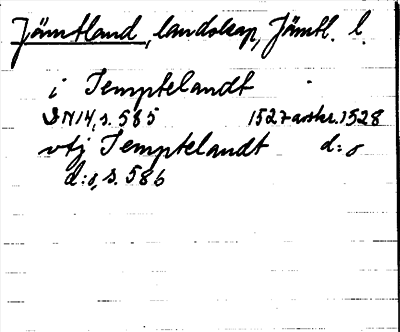 Jämtland, landskap, Jämtl. l.
i Temptelandt
DN14, s. 585 1527 avskr. 1528
vtj Temptelandt d:o
d:o, s. 586